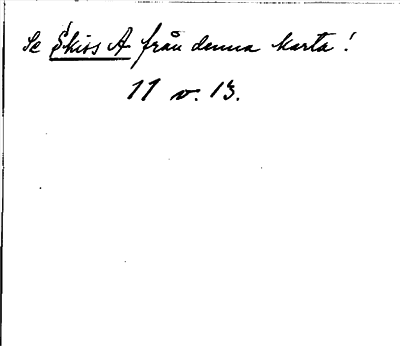 Se Skiss A från denna karta!
11 v. 13.